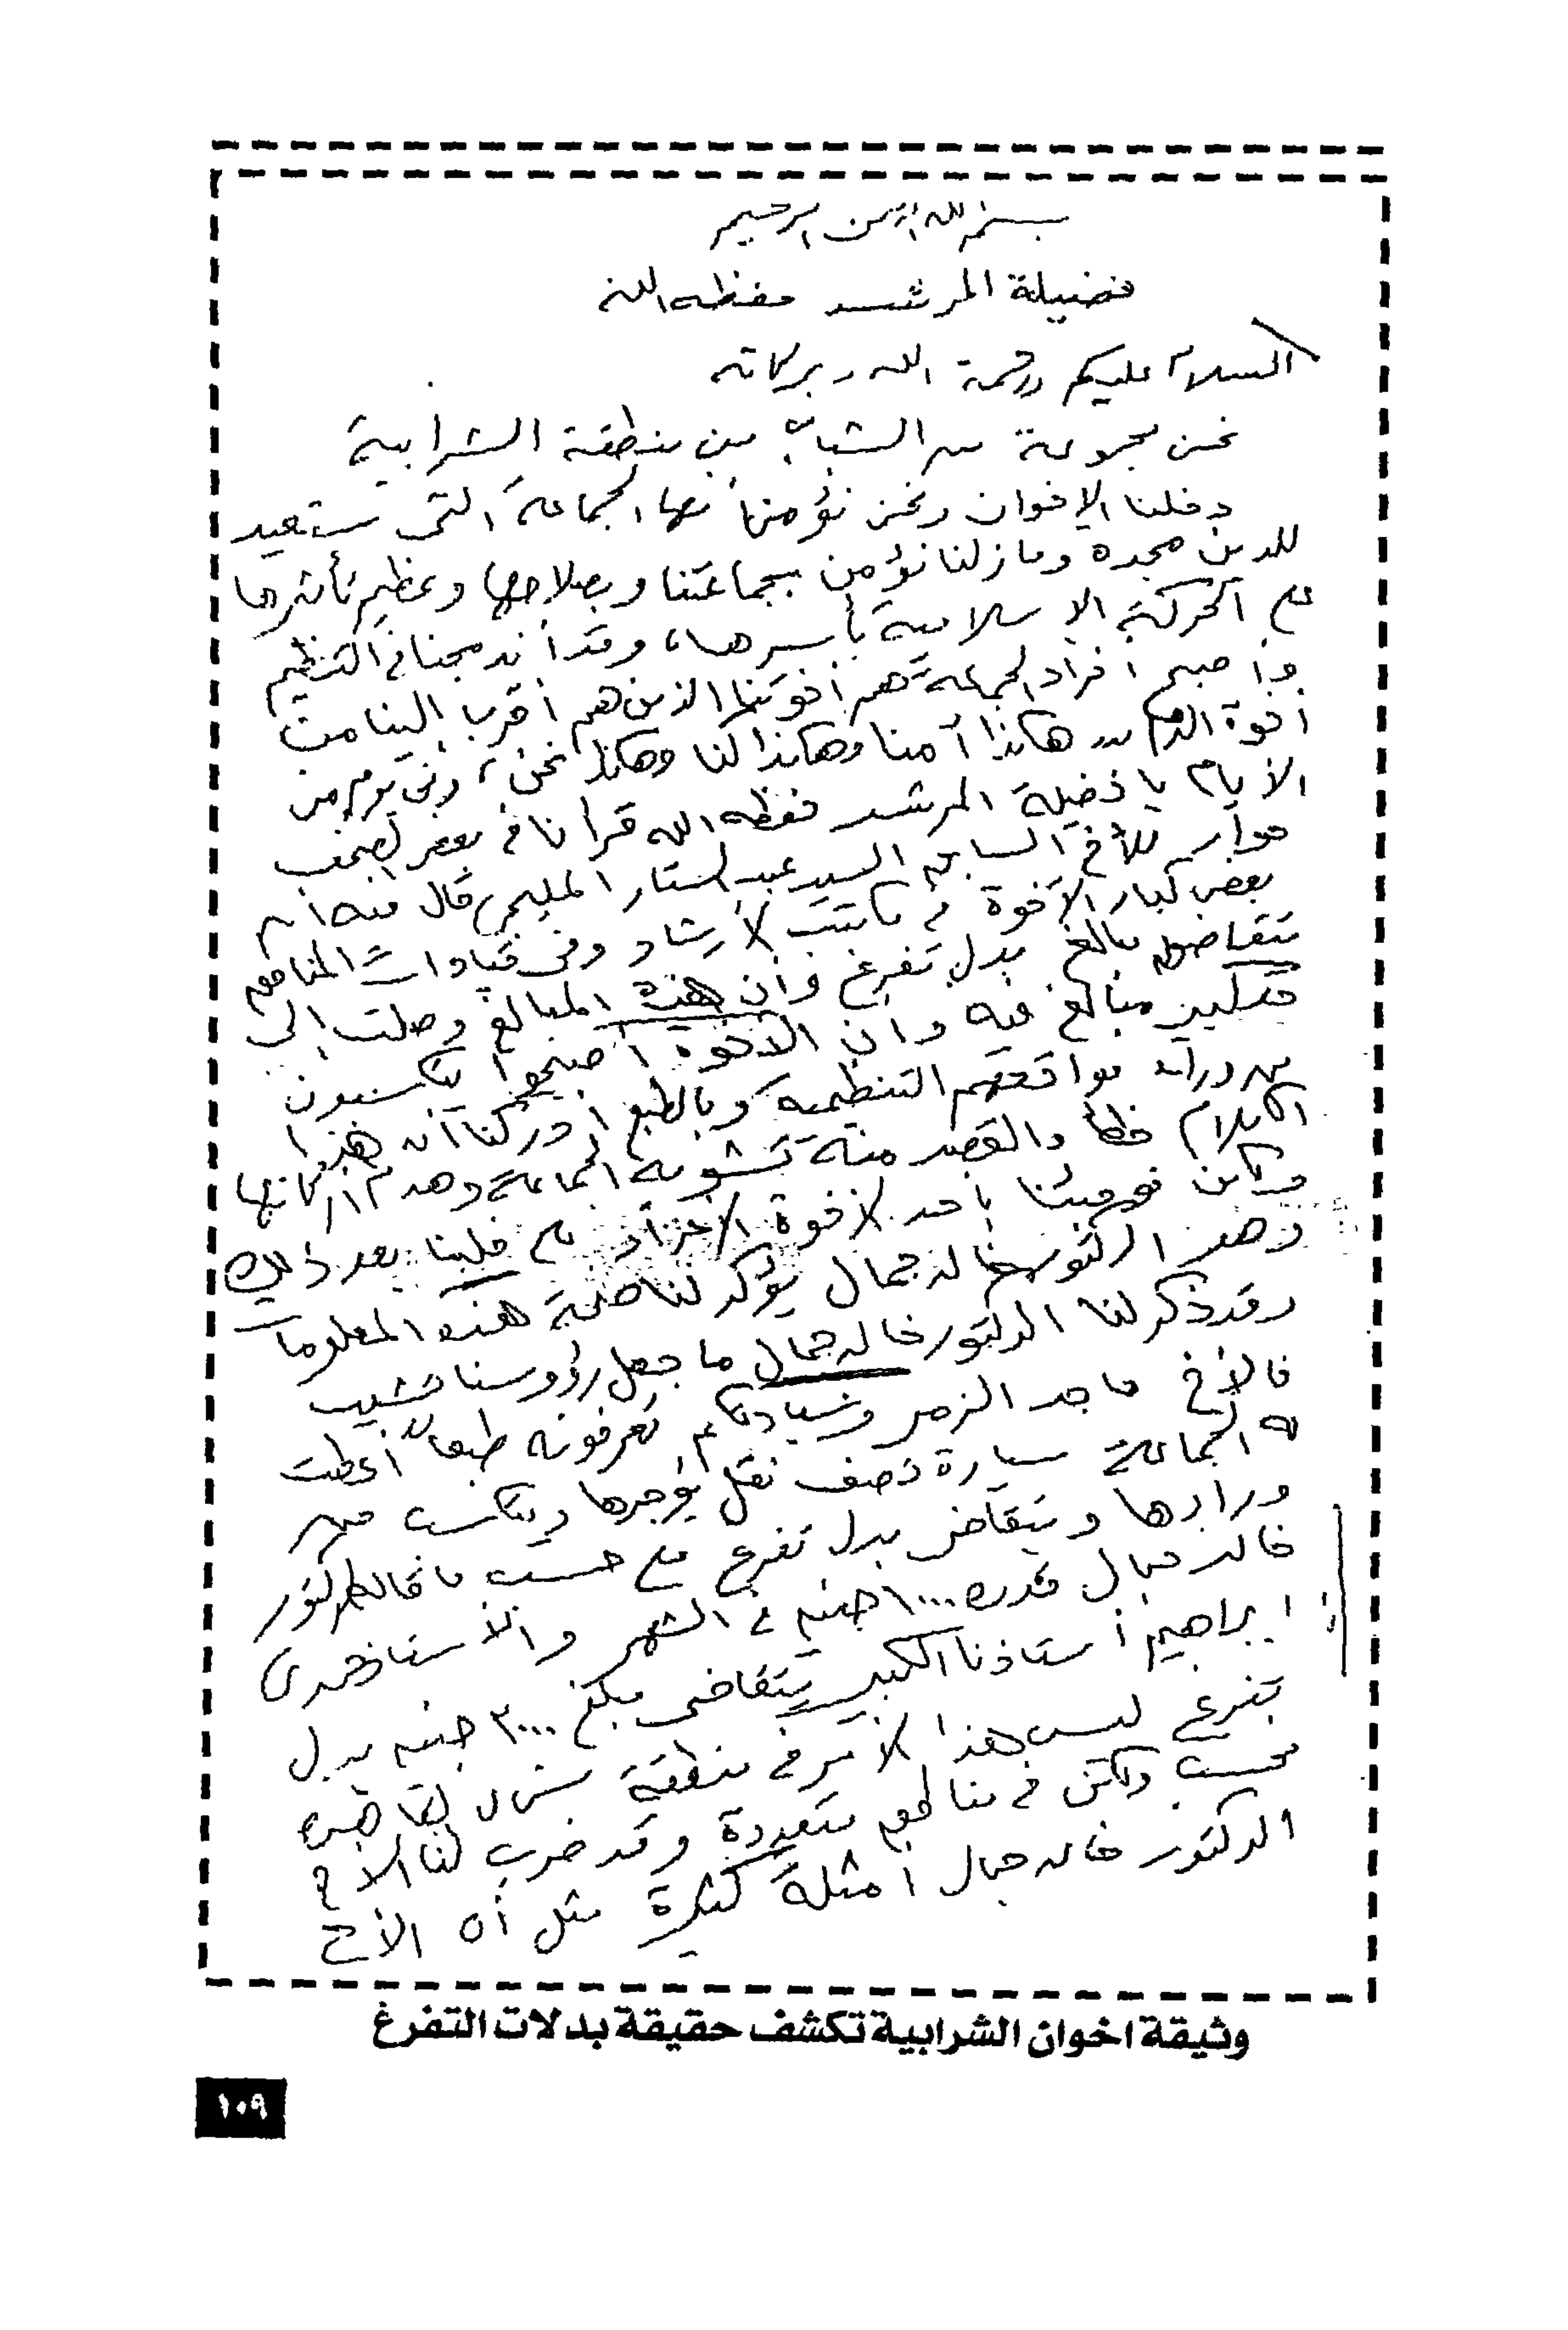 بسم الله الرحمن الرحيم
فضيلة المرشد حفظه الله
السلام عليكم ورحمة الله وبركاته
نحن مجموعة من الشباب من منطقة الشرابية
دخلنا الإخوان ونحن نؤمن أنها الجماعة التى ستعيد
للدين مجده وما زلنا نؤمن بجماعتنا وبصلاحها وعظيم تأثيرها
على الحركة الإسلامية بأسرها، وقد أندمجنا فى التنظيم
وأصبح أفراد الجماعة هم أخوتنا الذين هم أقرب إلينا من
أخوة الدم هكذا آمنا وهكذا كنا وهكذا نحن، وفى يوم من
الأيام يا فضيلة المرشد حفظه الله قرانا فى بعض الصحف
حوار للأخ السابق السيد عبد الستار المليجى قال فيه أن
بعض كبار الأخوة فى مكتب الأرشاد وفى قيادات المناطق
يتقاضون مبالغ بدل تفرغ وأن هذه المبالغ وصلت إلى
حد كبير مبالغ فيه وأن الأخوة أصبحوا يتكسبون
من وراء مواقعهم التنظيمية وبالطبع أدركنا أن هذا
الكلام خطأ والقصد منه تشويه الجماعة وهدم أركانها
ولكن فوجئنا بأحد الأخوة الأعزاء على قلبنا بعد ذلك
وهو الدكتور خالد جمال يؤكد لنا صحة هذه المعلومات
وقد ذكر لنا الدكتور خالد جمال ما جعل رؤوسنا تشيب
فالأخ ماجد الزمر وسيادتكم تعرفونه طبعا أعطت
له الجماعة سيارة نصف نقل يؤجرها ويتكسب من
ورائها ويتقاضى بدل تفرغ على حسب ما قال الدكتور
خالد جمال قدره ١٠٠٠٠ جنيه فى الشهر والأستاذ حمدى
ابراهيم أستاذنا الكبير يتقاضى مبلغ ٣٠٠٠ جنيه بدل
تفرغ ليس هذا الأمر فى منطقة شمال القاهرة
فحسب ولكن فى مناطق متعددة وقد ضرب لنا الأخ
الدكتور خالد جمال أمثلة كثيرة مثل أن الأخ
وثيقة اخوان الشرابية تكشف حقيقة بدلات التفرغ
١٠٩